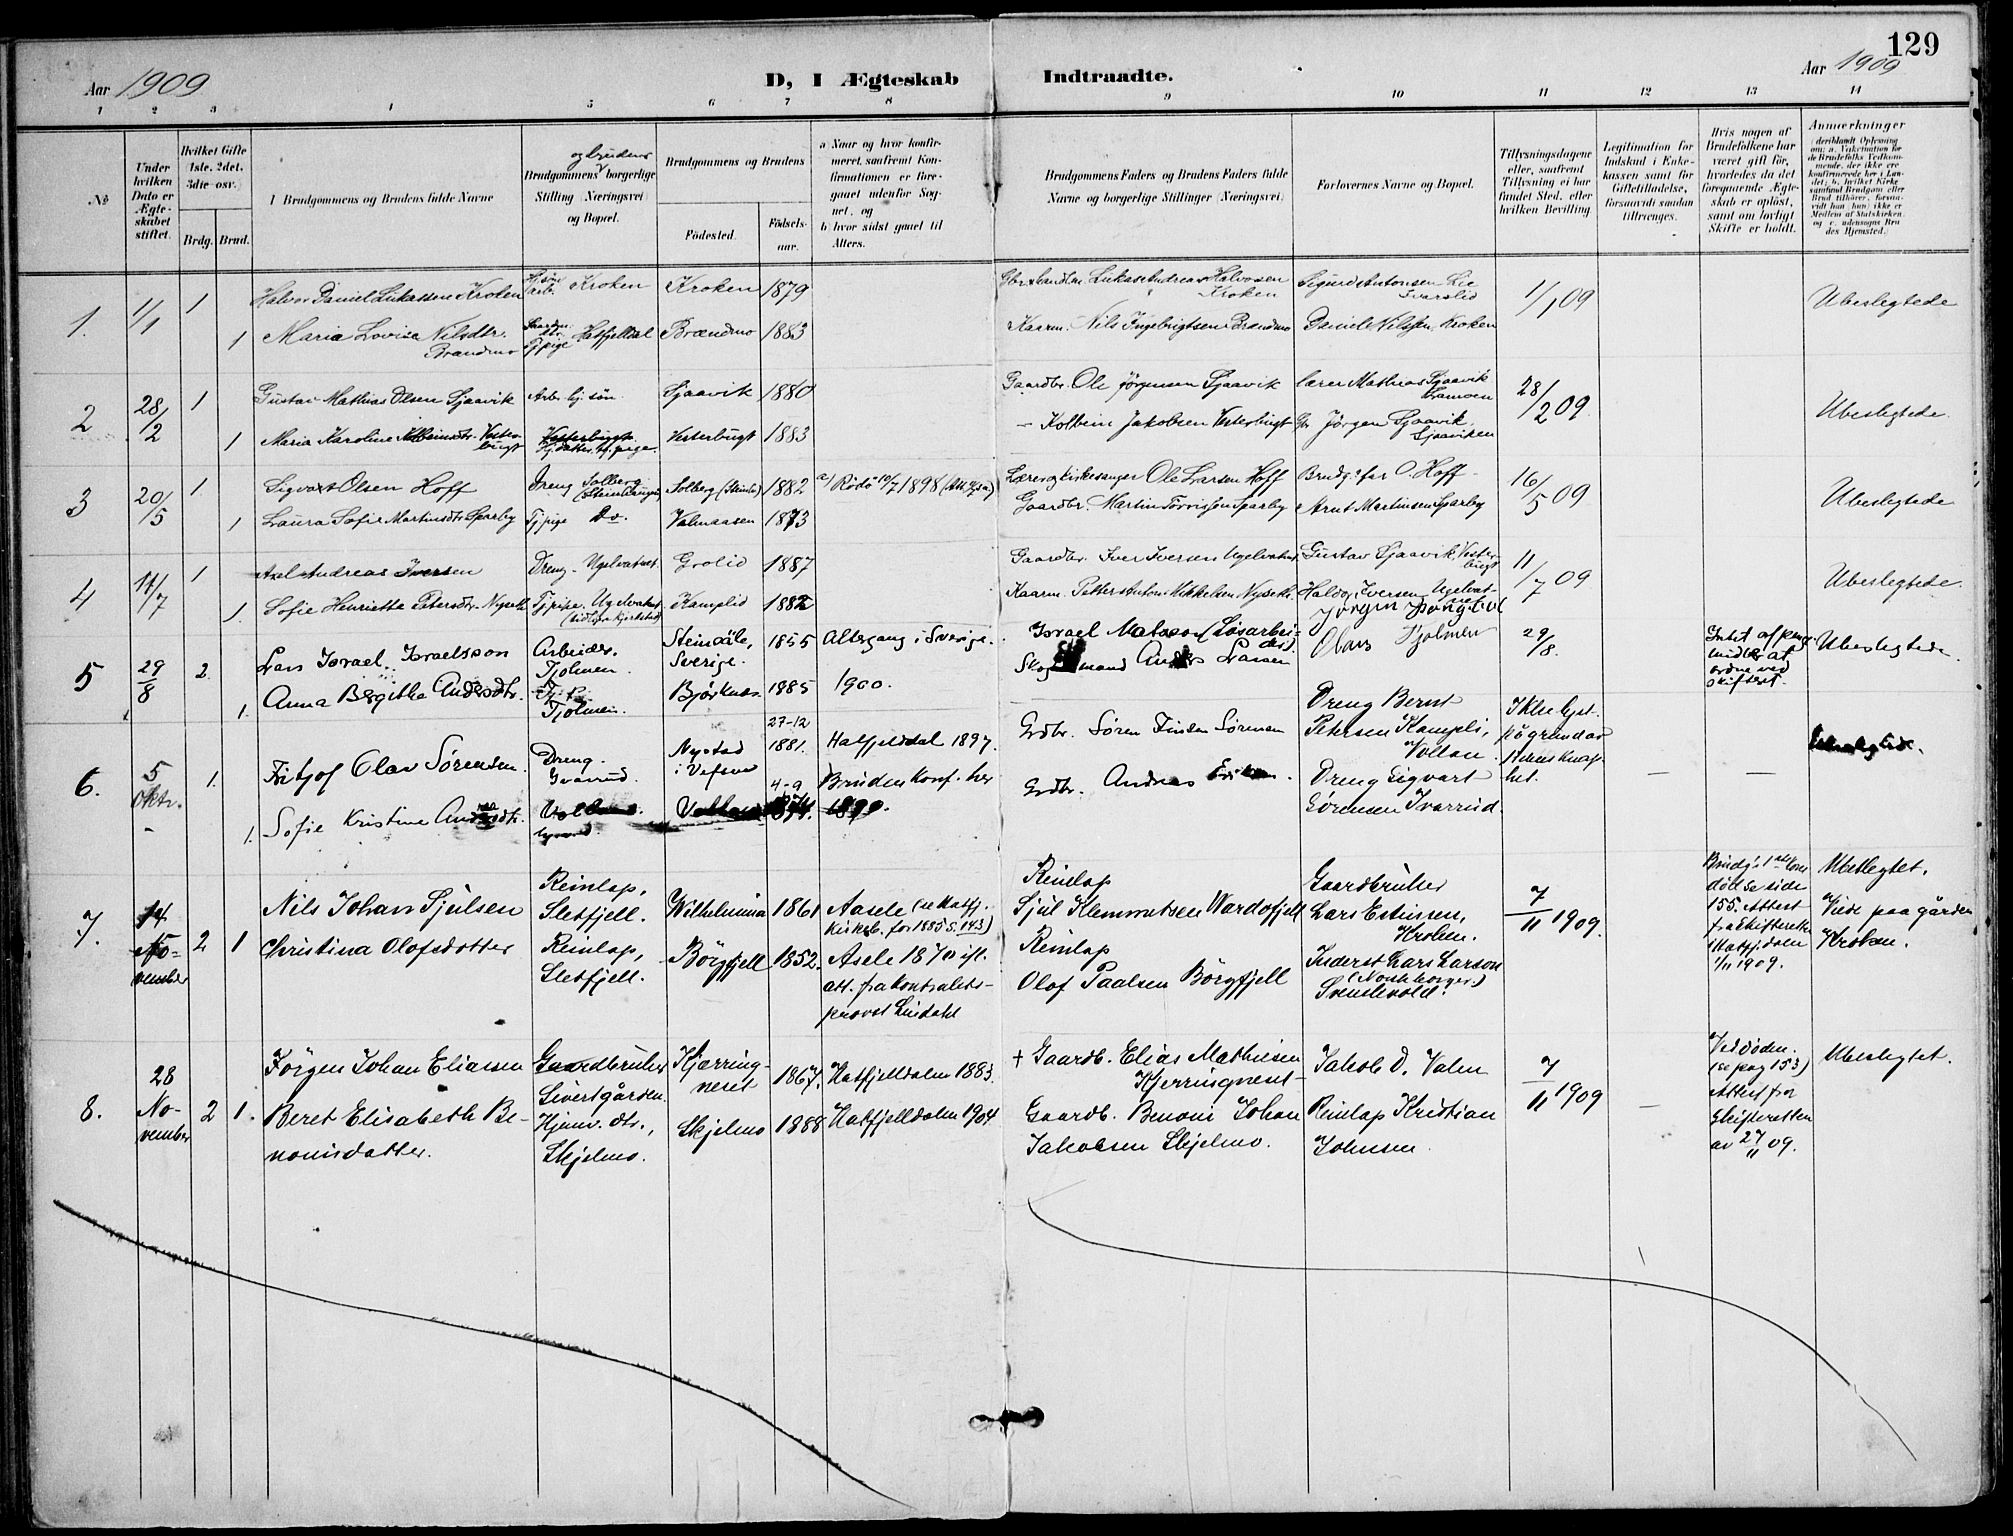 129
Aar 1909
D, I Ægteskab Indtraadte.
Aar 1909
1 2 3 4 5 6 7 8 9 10 11 12 13 14
№
Under hvilken Dato er Ægteskabet stiftet.
Hvilket Gifte 1ste, 2det, 3die osv.
Brdg. Brud.
Brudgommens og Brudens fulde Navne
og brudens
Brudgommens borgerlige Stilling (Næringsvei) og Bopæl.
Brudgommens og Brudens
Födested.
Födselsaar.
a Naar og hvor konfirmeret, saafremt Konfirmationen er foregaaet udenfor Sognet, og
b hvor sidst gaaet til Alters.
Brudgommens Faders og Brudens Faders fulde Navne og borgerlige Stillinger (Næringsvei)
Forlovernes Navne og Bopæl.
Tillysningsdagene eller, saafremt Tillysning ei har fundet Sted, efter hvilken Bevilling.
Legitimation for Indskud i Enkekassen samt for Giftetilladelse, forsaavidt saadan tiltrænges.
Hvis nogen af Brudefolkene har været gift för, hvorledes da det foregaaende Ægteskab er oplöst, samt om lovligt Skifte er holdt.
Anmærkninger
1. 1/1 1 Halvor Daniel Lukassen Kroken Kroken Kroken 1879 Lukas Andreas Halvorsen Kroken Sigurd Antonsen Lie Ivarslid 1/1 09 Ubeslegtede
1 Maria Lovisa Nilsdtr. Brandmo Tjpige Hatfjelldal Brændmo 1883 Kaarm. Nils Ingebrigtsen Brandmo Daniel Nilssen Kroken
2 28/2 1 Gustav Mathias Olsen Sjaavik Arb. hj. sön Sjaavik 1880 Gaardbr. Ole Jørgensen Sjaavik lærer Mathias Sjaavik 28/2 09. Ubeslegtede
1 Maria Karoline Kolbeinsdtr. Vesterbugt Vesterbugt 1883 – Kolbein Jakobsen Vesterbugt Jörgen Sjaavik, Sjaaviken
3 20/5 1 Sigvart Olsen Hoff Dreng Solberg Solberg 1882 a) Rödö 10/7 1898 Lærer og kirkesanger Ole Larsen Hoff Brudg.s far O. Hoff 16/5 09 Ubeslegtede
1 Laura Sofie Martinsdtr. Sparby Tjpige Do. Valmaasen 1873 Gaardbr. Martin Torrissen Sparby Arnt Martinsen Sparby
4 11/7 1 Axel Andreas Iversen Dreng - Ugelvatnet Grolid 1887 Gaardbr. Iver Iversen Ugelvatnet Gustav Sjaavik Vesterbugt 11/7 09 Ubeslegtede.
1. Sofie Henriette Petersdtr. Nyseth Tjpige. Ugelvatnet Kamplid 1882 Kaarm. Petter Anton Mikkelsen Nyseth Haldog Iversen Ugelvatnet
5 29/8 2. Lars Israel Israelsson Arbeider. Tjolmen. Steindöle, Sverige. 1855 Altergang i Sverige. Israel Matsson (Løsarbeider) Olaus Tjolmen 29/8. Ubeslegtede.
1. Anna Bergitha Andersdtr. Tjolmen. Bjørknes 1885 1900. Anders Larsen
Intet af penge midler at ordne ved skiftet.
6. 5 Oktr. 1. Fritjof Olav Sørensen. Dreng. Nystad i Vefsen 27-12 1881. Hatfjelddal 1897. Grdbr. Søren Finsen Sørensen Dreng Bernt Petersen Kampli, Vollan. Ikke lyst på grund av
1. Sofie Kristine Andersdtr. Vollan 4-9 1874. Bruden konf. her 1890. Grdbr. Andreas Eriksen. Dreng Sigvart Sörensen Ivarrud. — —
7. 14 November 2 1 Nils Johan Sjulsen Reinlap, Sletfjell. Wilhelmina 1861 Aasele (se Hatfj. kirkeb. for 1885 s. 143) Reinlap Sjul Klemmetsen Wardofjell Gaardbruker Lars Estensen, Kroken. 7/11 1909. Ubeslegtet.
Christina Olofsdotter Reinlap, Sletfjell. Börgfjell 1852. Asele 1870 ifl. att. fra Kontraktsprovst Lindahl Reinlap Olof Paalsen Börgfjell Inderst Lars Larsen (Norsk borger) Svenskevold. Viede paa gården Kroken.
Brudg.s 1ste kone död se side 155. Attest fra Skifteretten Hatfjdalen 1/11 1909.
8. 28 November 2 1. Jörgen Johan Eliassen Gaardbruker Sivertgården Kjærringneset 1867. Hatfjelldalen 1883. + Gaardb. Elias Mathisen Kjerringneset Jakob D. Valen 7/11 1909 — Ubeslegtet.
Beret Elisabeth Benonisdatter. Hjemv. dtr., Skjelmo. Skjelmo 1888 Hatfjelldalen 1904 Gaardb. Benoni Johan Jakobsen Skjelmo. Reinlap Kristian Johnsen
Ved döden. (se pag 153) Attest fra Skifteretten av 27/11 09.